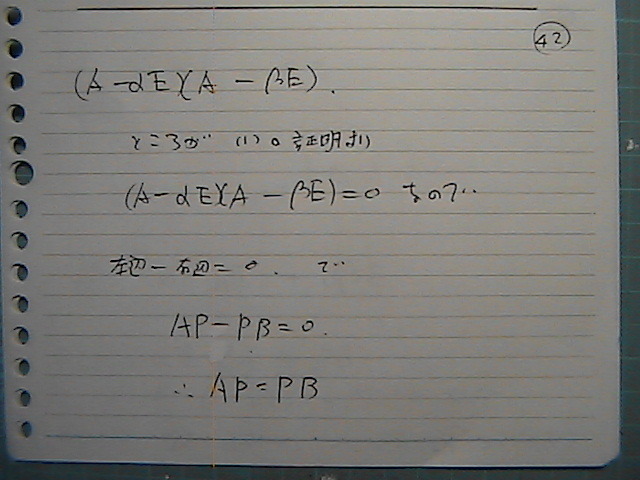 42
(A-αE)(A-βE).
ところが (1)の証明より
(A-αE)(A-βE)=0 なので
左辺-右辺=0. で
AP-PB=0.
∴ AP=PB